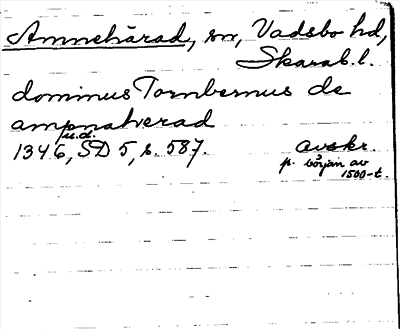 Amnehärad, sn, Vadsbo hd,
Skarab. l.
dominus Tornbernus de
ampnatverad
u.d.
1346, SD 5, s. 587. avskr.
p. början av
1500-t.